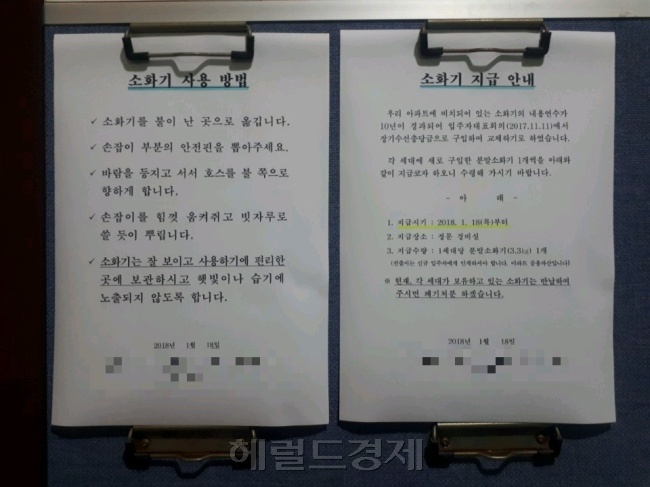 소화기 사용 방법
✓ 소화기를 불이 난 곳으로 옮깁니다.
✓ 손잡이 부분의 안전핀을 뽑아주세요.
✓ 바람을 등지고 서서 호스를 불 쪽으로
향하게 합니다.
✓ 손잡이를 힘껏 움켜쥐고 빗자루로
쓸 듯이 뿌립니다.
✓ 소화기는 잘 보이고 사용하기에 편리한
곳에 보관하시고 햇빛이나 습기에
노출되지 않도록 합니다.
2018년 1월 18일
소화기 지급 안내
우리 아파트에 비치되어 있는 소화기의 내용연수가
10년이 경과되어 입주자대표회의(2017.11.11)에서
장기수선충당금으로 구입하여 교체하기로 하였습니다.
각 세대에 새로 구입한 분말소화기 1개씩을 아래와
같이 지급코자 하오니 수령해 가시기 바랍니다.
- 아 래 -
1. 지급시기 : 2018. 1. 18(목)부터
2. 지급장소 : 정문 경비실
3. 지급수량 : 1세대당 분말소화기(3.3㎏) 1개
(전출이는 신규 입주자에게 인계하셔야 합니다. 아파트 공용자산입니다)
※ 현재, 각 세대가 보유하고 있는 소화기는 반납하여
주시면 폐기처분 하겠습니다.
2018년 1월 18일
헤럴드경제